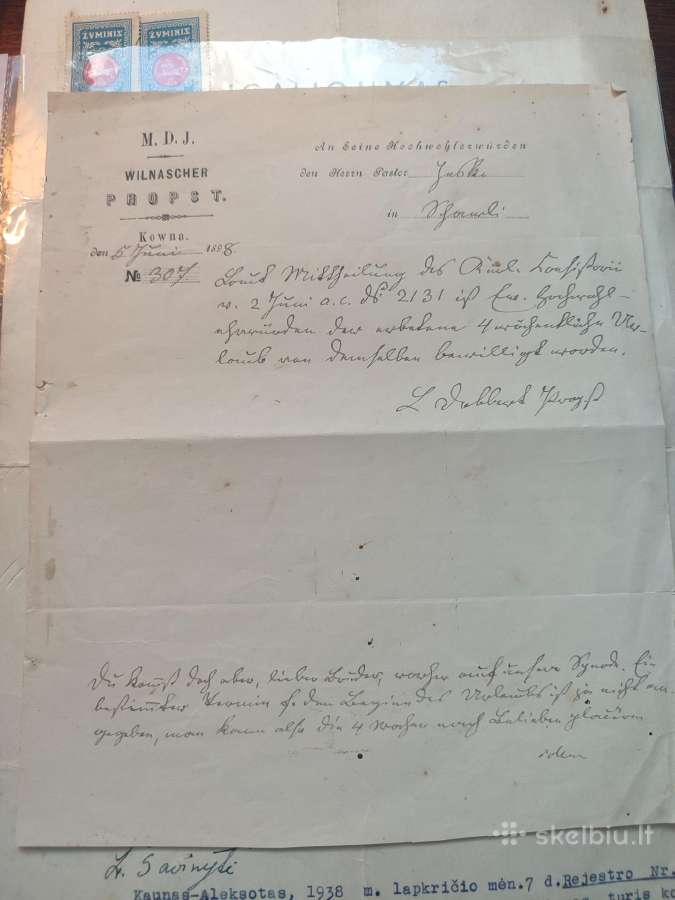 ŽYMINIS ŽYMINIS
M. D. J.
WILNASCHER
PROPST.
Kowno.
den 5 Juni 1898
№ 307
An Seine Hochwohlerwürden
den Herrn Pastor
in Schauli
Laut Mittheilung des Kurl. Consistorii
v. 2 Juni a.c. № 2131 ist Ew. Hochwohl-
ehrwürden der erbetene 4 wöchentliche Ur-
laub von demselben bewilligt worden.
L Dobbert Propst
Du kommst doch aber, lieber Bruder, vorher auf unsere Synode. Ein
bestimmter Termin f. den Beginn des Urlaubs ist ja nicht an-
gegeben, man kann also die 4 Wochen nach Belieben
idem
skelbiu.lt
Kaunas-Aleksotas, 1938 m. lapkričio mėn. 7 d. Rejestro Nr.
turis